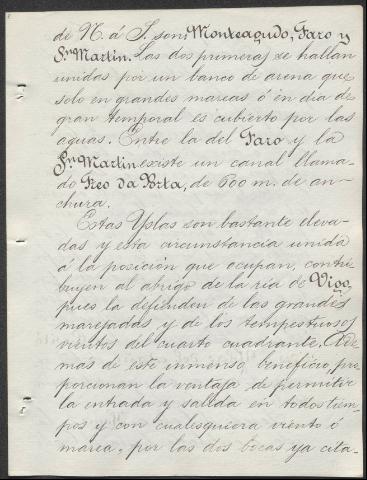 de N. á S. son, Monteagudo, Faro y
Sn Martin. Las dos primeras se hallan
unidas por un banco de arena que
solo en grandes mareas ó en dia de
gran temporal es cubierto por las
aguas. Entre la del Faro y la
Sn Martin existe un canal llama-
do Freo da Porta, de 600 m. de an-
chura.
Estas Yslas son bastante eleva-
das y esta circunstancia unida
á la posición que ocupan, contri-
buyen al abrigo de la ria de Vigo,
pues la defienden de las grandes
marejadas y de los tempestuosos
vientos del cuarto cuadrante. Ade
mas de este inmenso beneficio, pro
porcionan la ventaja de permitir
la entrada y salida en todos tiem-
pos y con cualesquiera viento ó
marea, por las dos bocas ya cita-